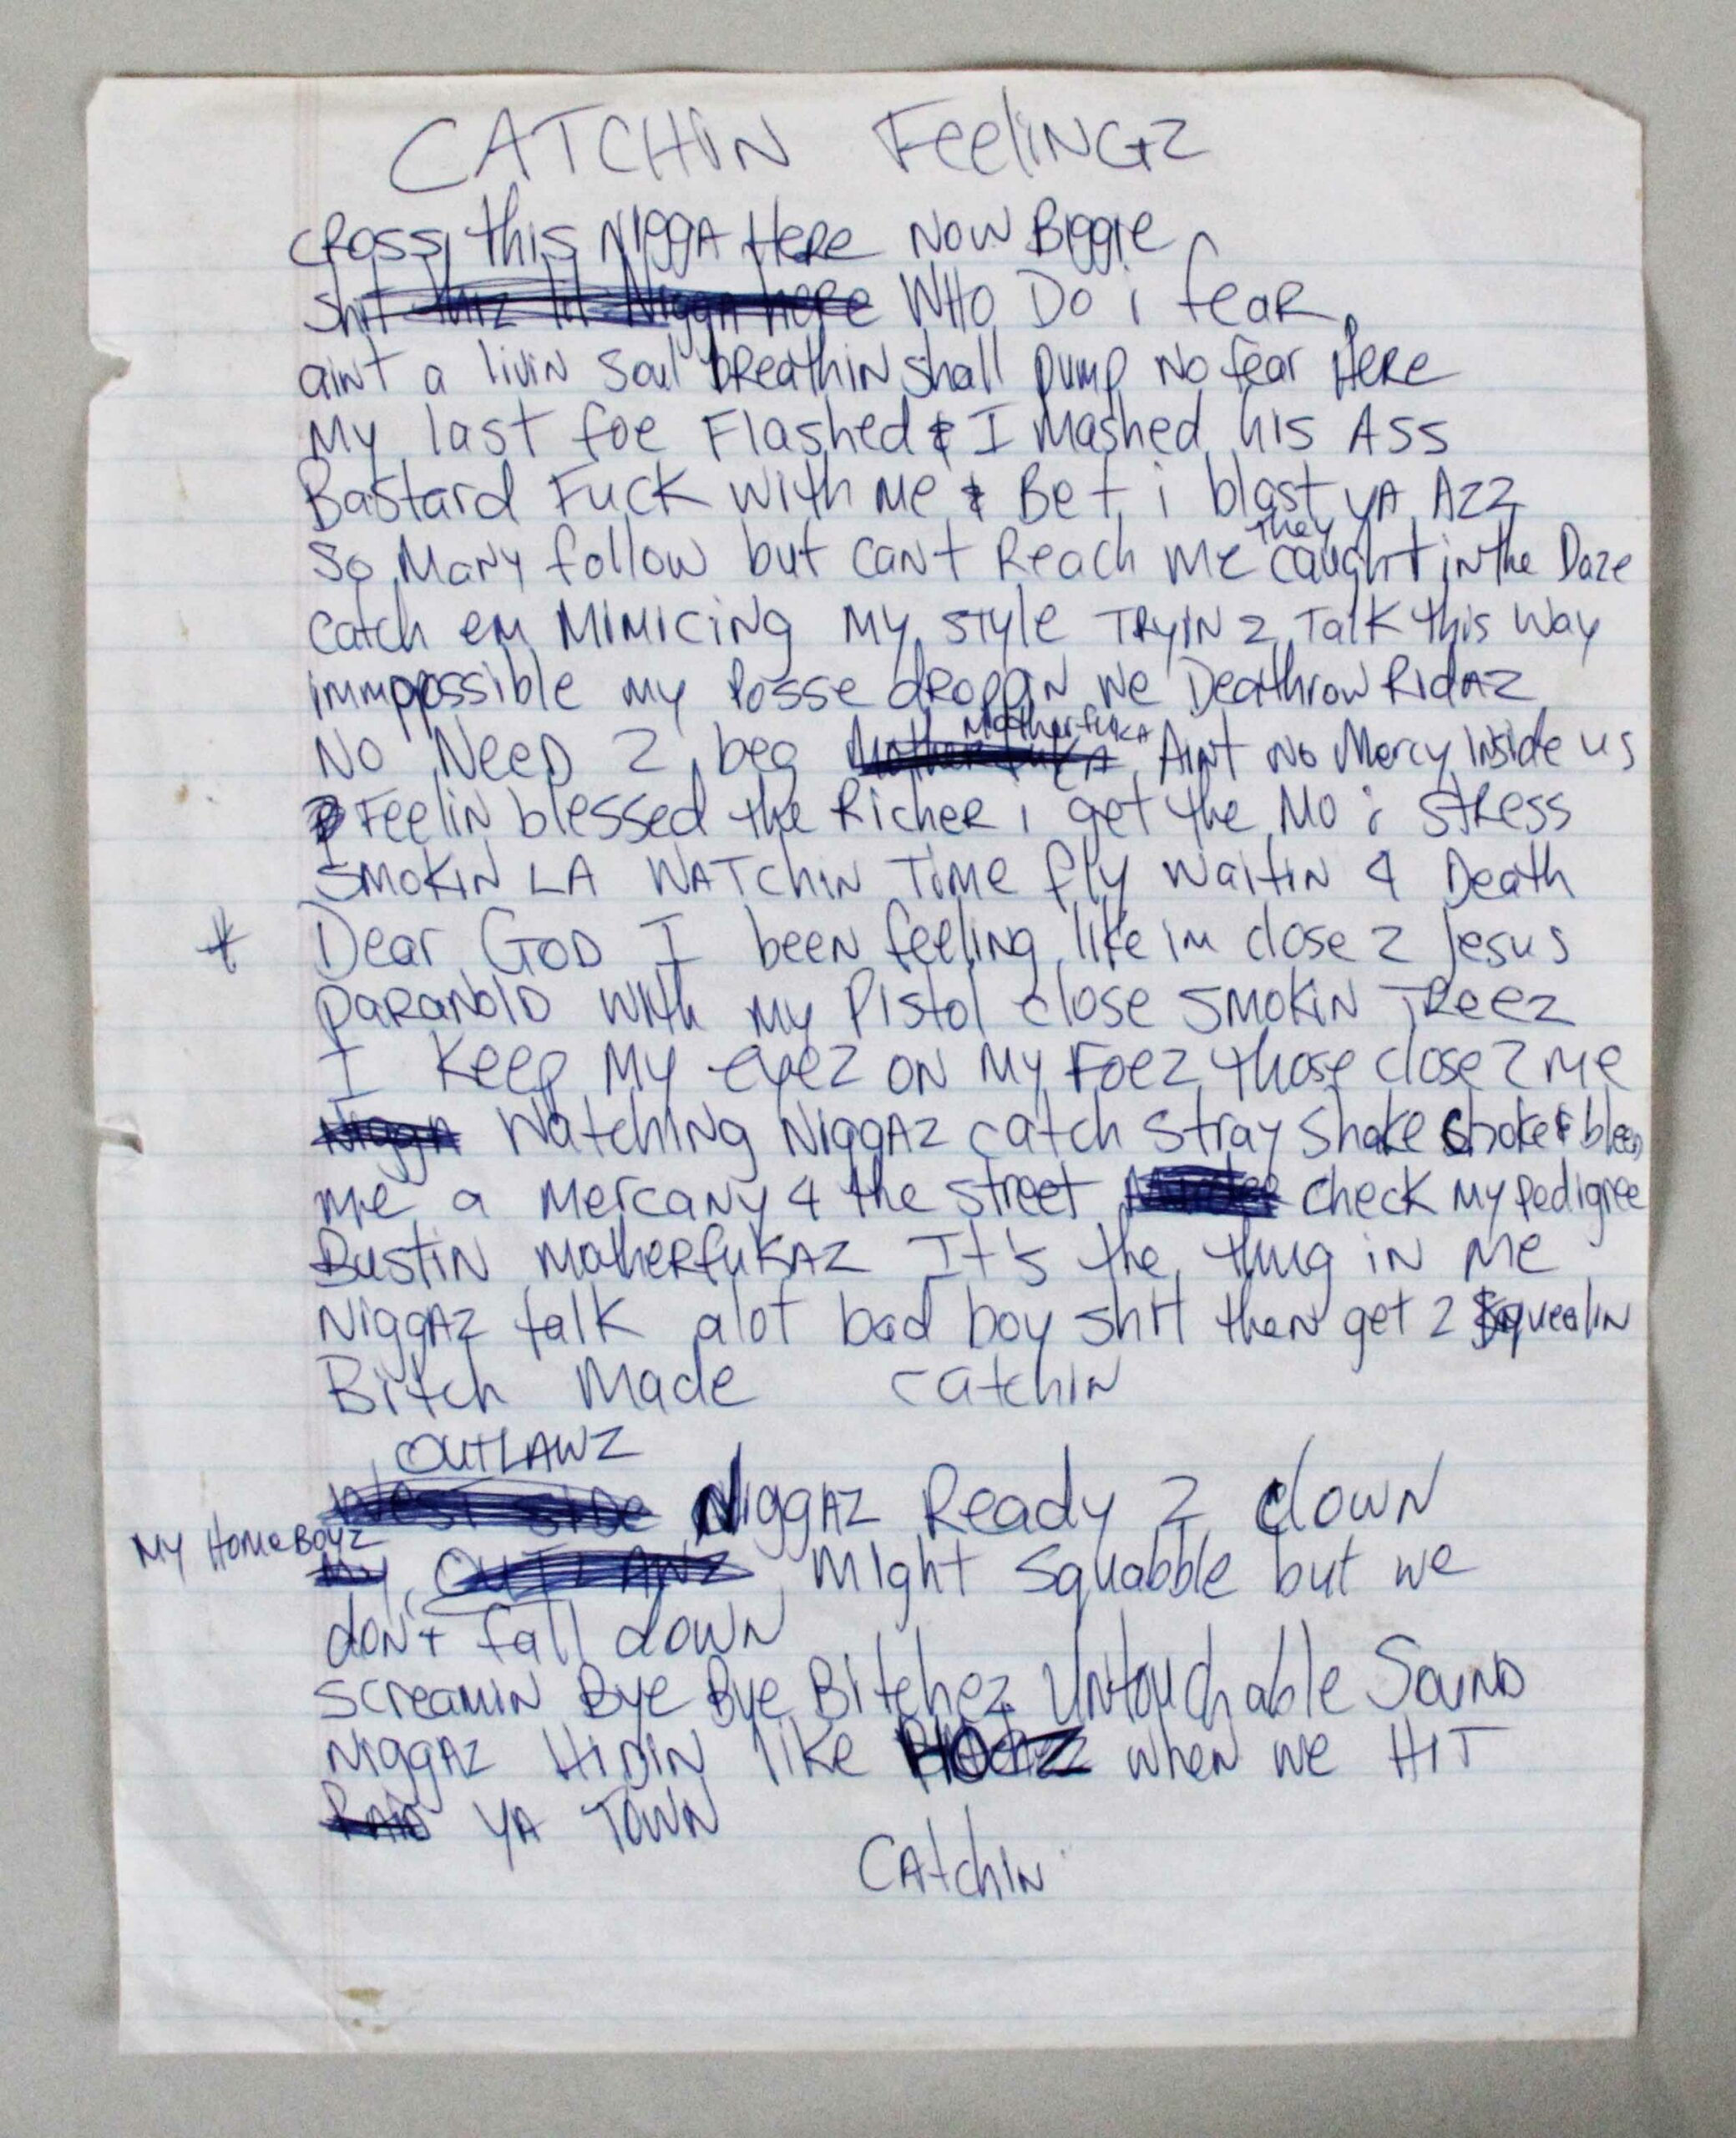 CATCHIN FeeliNGZ
CROSS this NIggA HeRe NOW BIggIe
Shit thiz lil Nigga here WHO DO i feaR
aint a livin soul bReathiN shall pump No fear HeRe
My last foe Flashed & I Mashed his ASS
Bastard Fuck with Me & Bet i blast YA AZZ
So MaNy follow but can't Reach me they caught iN the Daze
catch em MiMiciNg My STyle TRyiN 2 Talk this Way
immpossible my Posse droppin we Deathrow RidAZ
No NeeD 2 beg MotherfuKA MotherfuKA AiNt No Mercy INside us
FeeliN blessed the RicheR i get the Mo i StRess
SMoKiN LA WATchiN TiMe fly waitiN 4 Death
* Dear GoD I been feeling like im close 2 Jesus
PaRaNoiD with my Pistol close SMoKiN TReez
I Keep My eyez oN My Foez those close 2 Me
NiggA Watching NiggAZ catch stray shake choke & bleed
me a Mercany 4 the street check my pedigree
BustiN MotherfuKAZ It's the thug iN Me
NiggAZ talk alot bad boy shit then get 2 squealin
Bitch Made catchiN
OUTLAWZ
West SiDe NiggAZ Ready 2 clowN
My HomeBoyz
My OUTLAWZ Might Squabble but we
don't fall dowN
ScreamiN Bye Bye Bitchez UNtouchable SouND
NiggAZ HiDiN like HOZ when we HIT
RAiD YA TowN
CAtchiN